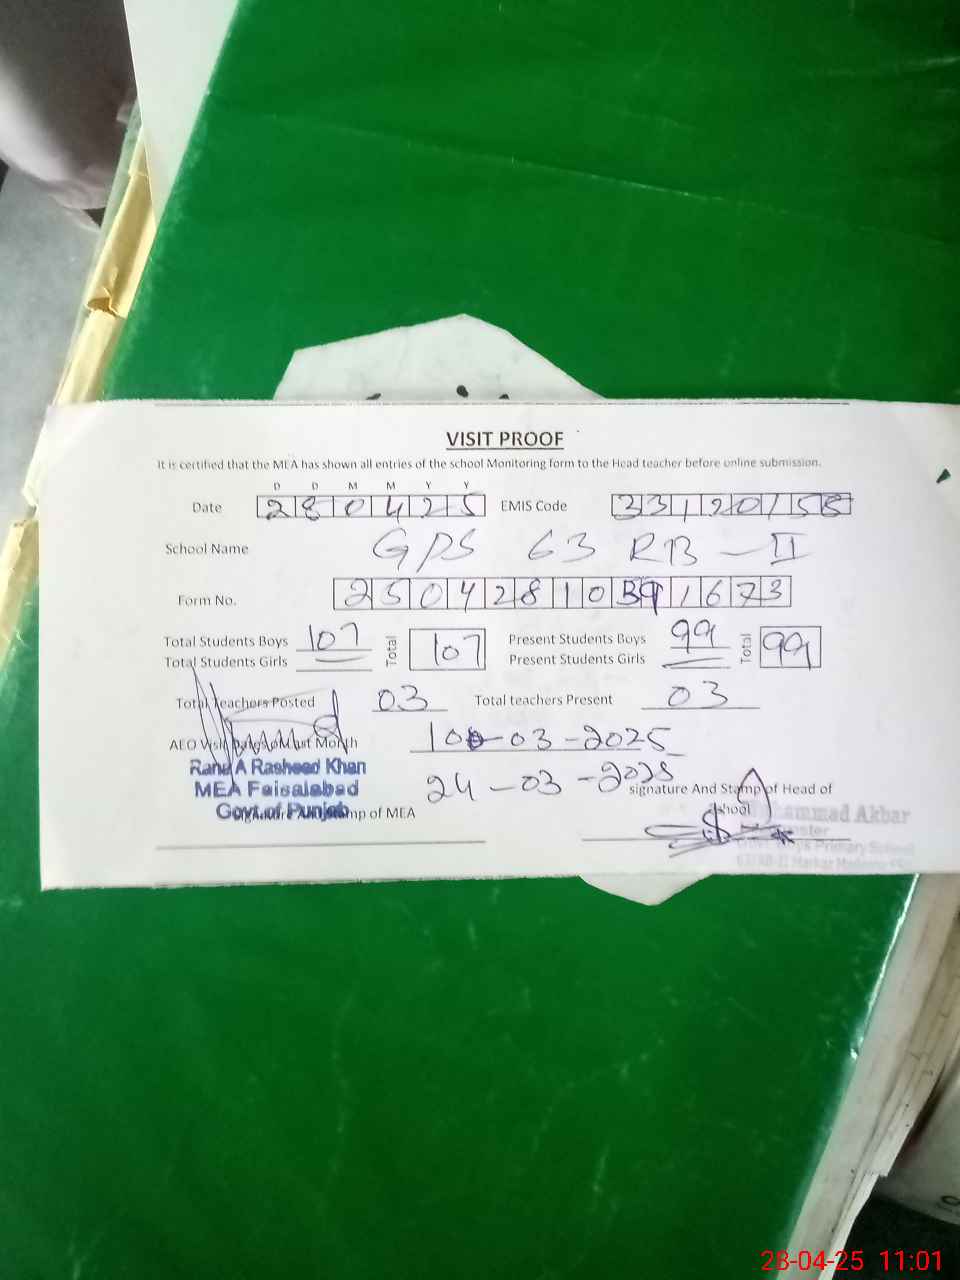 VISIT PROOF
It is certified that the MEA has shown all entries of the school Monitoring form to the Head teacher before online submission.
D D M M Y Y
Date 280425 EMIS Code 33120158
School Name GPS 63 RB - II
Form No. 250428103 91673
Total Students Boys 107 Total 107 Present Students Boys 99 Total 99
Total Students Girls Present Students Girls
Total Teachers Posted 03 Total teachers Present 03
AEO Visit Last Month 10-03-2025
24-03-2025
Rana A Rasheed Khan
MEA Faisalabad
Govt. of Punjab
signature And Stamp of Head of School
Stamp of MEA
Akbar
Primary School
28-04-25 11:01